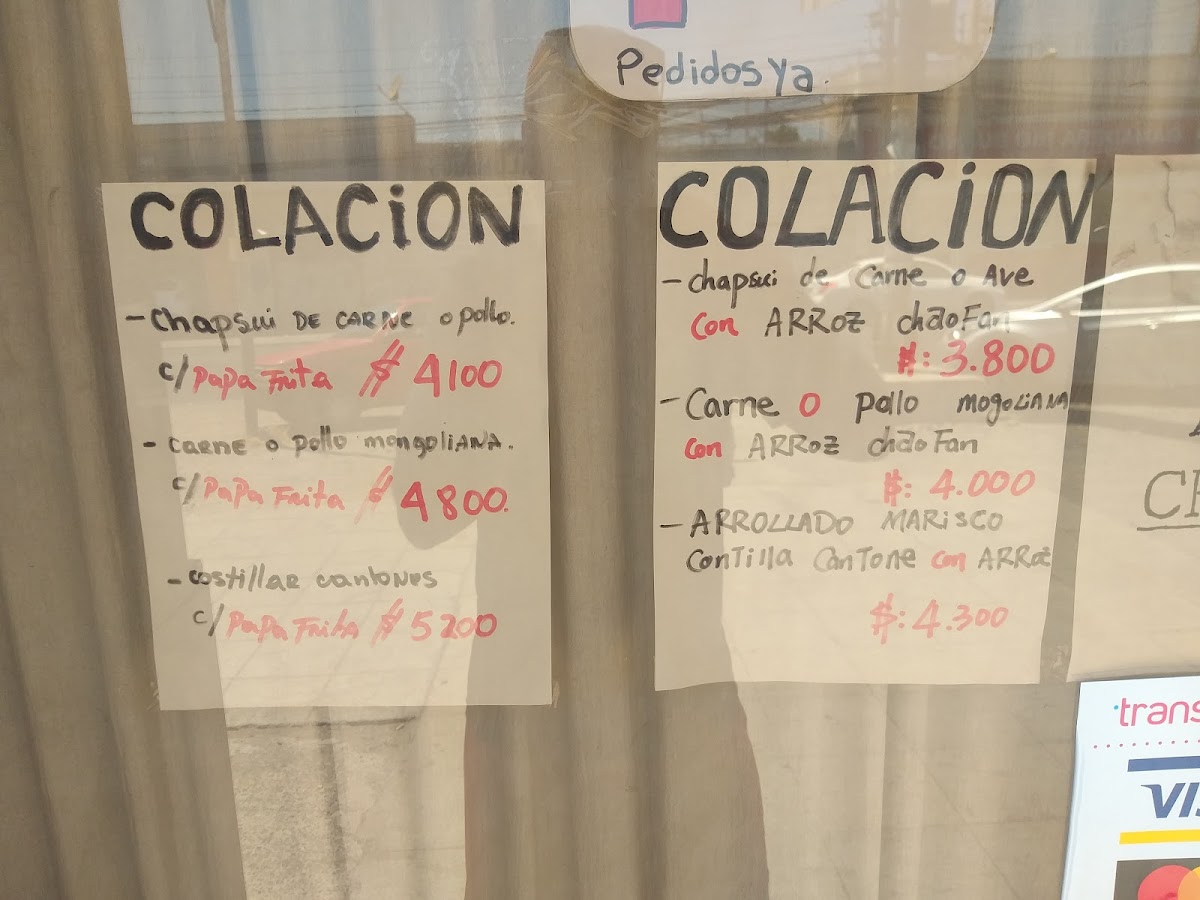 Pedidos ya.
COLACiON
- Chapsui DE CARNE o pollo.
c/ PaPa Frita $ 4100
- CARNE o pollo mongoliANA.
c/ PaPa Frita $ 4800.
- costillar cantones
c/ PaPa Frita $ 5200
COLACiON
- chapsui de Carne o Ave
con ARRoz chaoFan
$: 3.800
- Carne o pollo mogoliANA
con ARRoz chaoFan
$: 4.000
- ARROLLADO MARiSCO
ConTilla CanTone con ARRoz
$: 4.300
trans
VIS